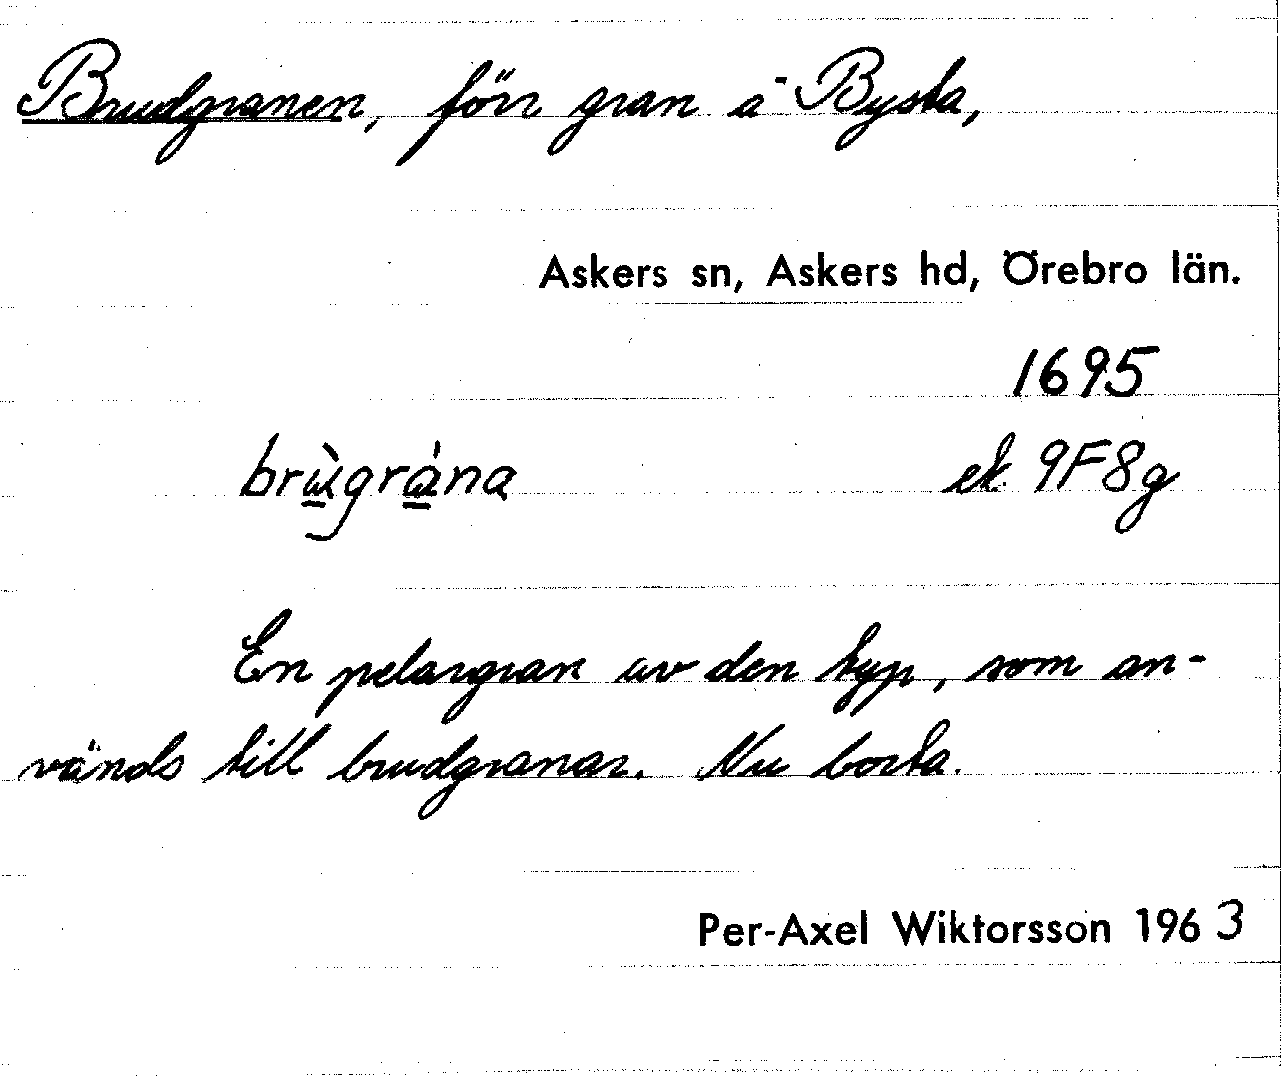 Brudgranen, förr gran å Bysta,
Askers sn, Askers hd, Örebro län.
1695
brùgrána
ek. 9F8g
En pelargran av den typ, som an-
vänds till brudgranar. Nu borta.
Per-Axel Wiktorsson 1963